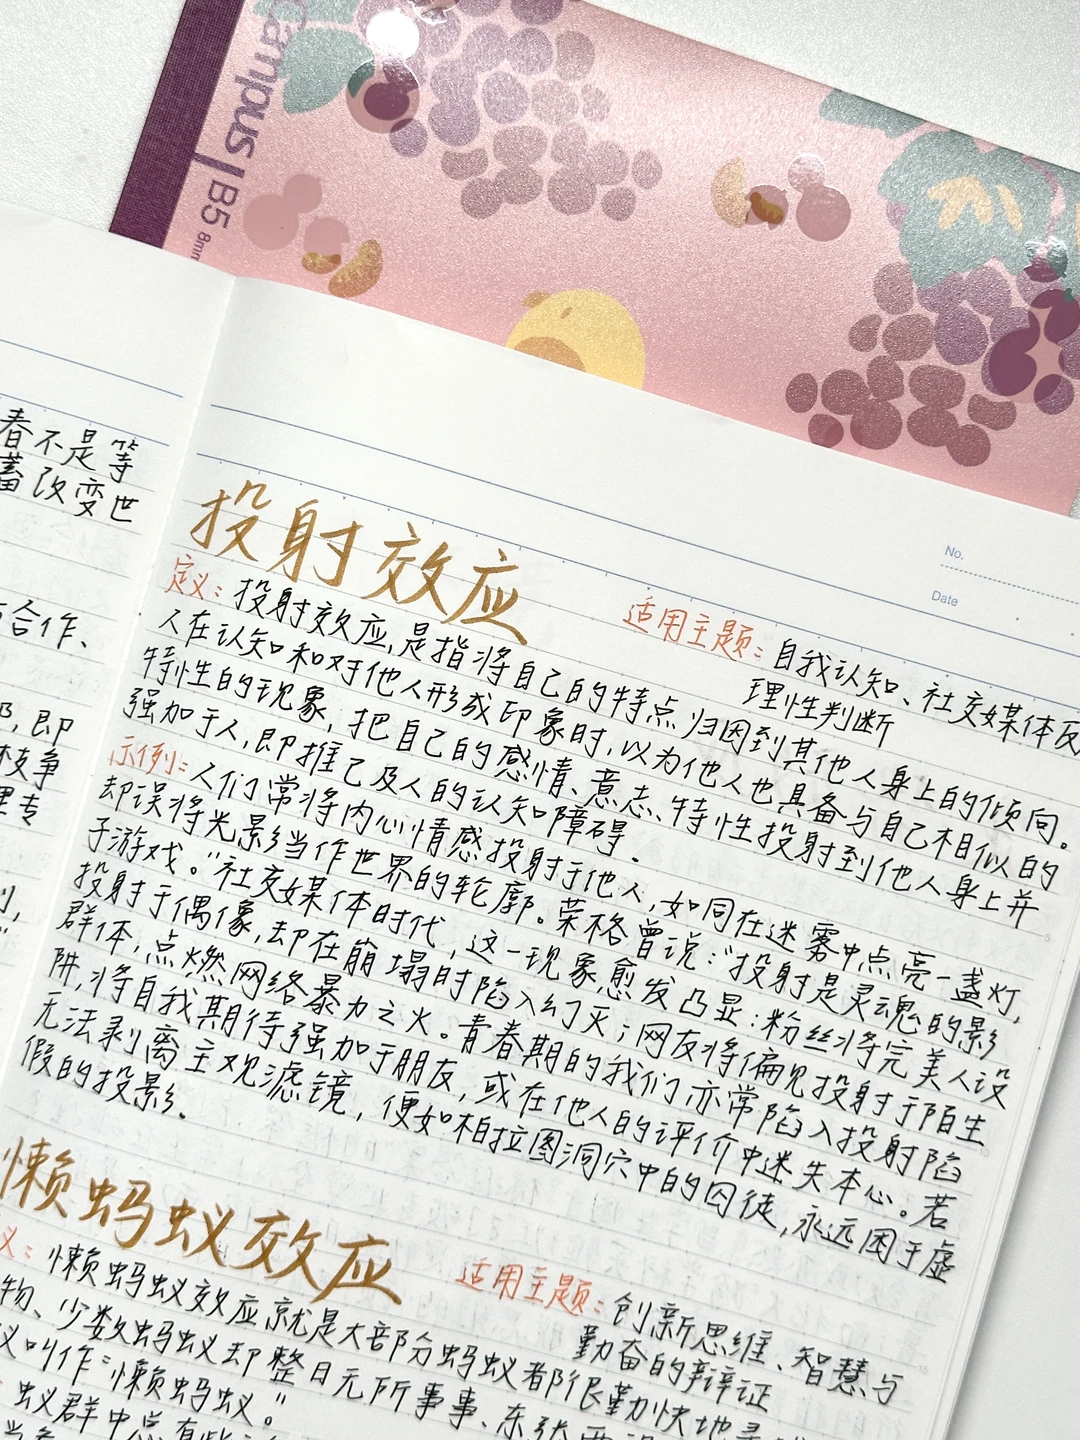 Campus
B5 8mm
春不是等
蓄改变世
合作、
即
枝争
理专
No.
Date
投射效应
适用主题：自我认知、社交媒体反
理性判断
定义：投射效应,是指将自己的特点归因到其他人身上的倾向。
人在认知和对他人形成印象时,以为他人也具备与自己相似的
特性的现象,把自己的感情、意志、特性投射到他人身上并
强加于人,即推己及人的认知障碍。
示例：人们常将内心情感投射于他人,如同在迷雾中点亮一盏灯,
却误将光影当作世界的轮廓。荣格曾说：“投射是灵魂的影
子游戏。”社交媒体时代,这一现象愈发凸显：粉丝将完美人设
投射于偶像,却在崩塌时陷入幻灭；网友将偏见投射于陌生
群体,点燃网络暴力之火。青春期的我们亦常陷入投射陷
阱,将自我期待强加于朋友,或在他人的评价中迷失本心。若
无法剥离主观滤镜,便如柏拉图洞穴中的囚徒,永远困于虚
假的投影。
懒蚂蚁效应
适用主题：创新思维、智慧与
勤奋的辩证
义：懒蚂蚁效应就是大部分蚂蚁都很勤快地寻
物、少数蚂蚁却整日无所事事、东张西
叫作“懒蚂蚁。”
蚁群中总有些